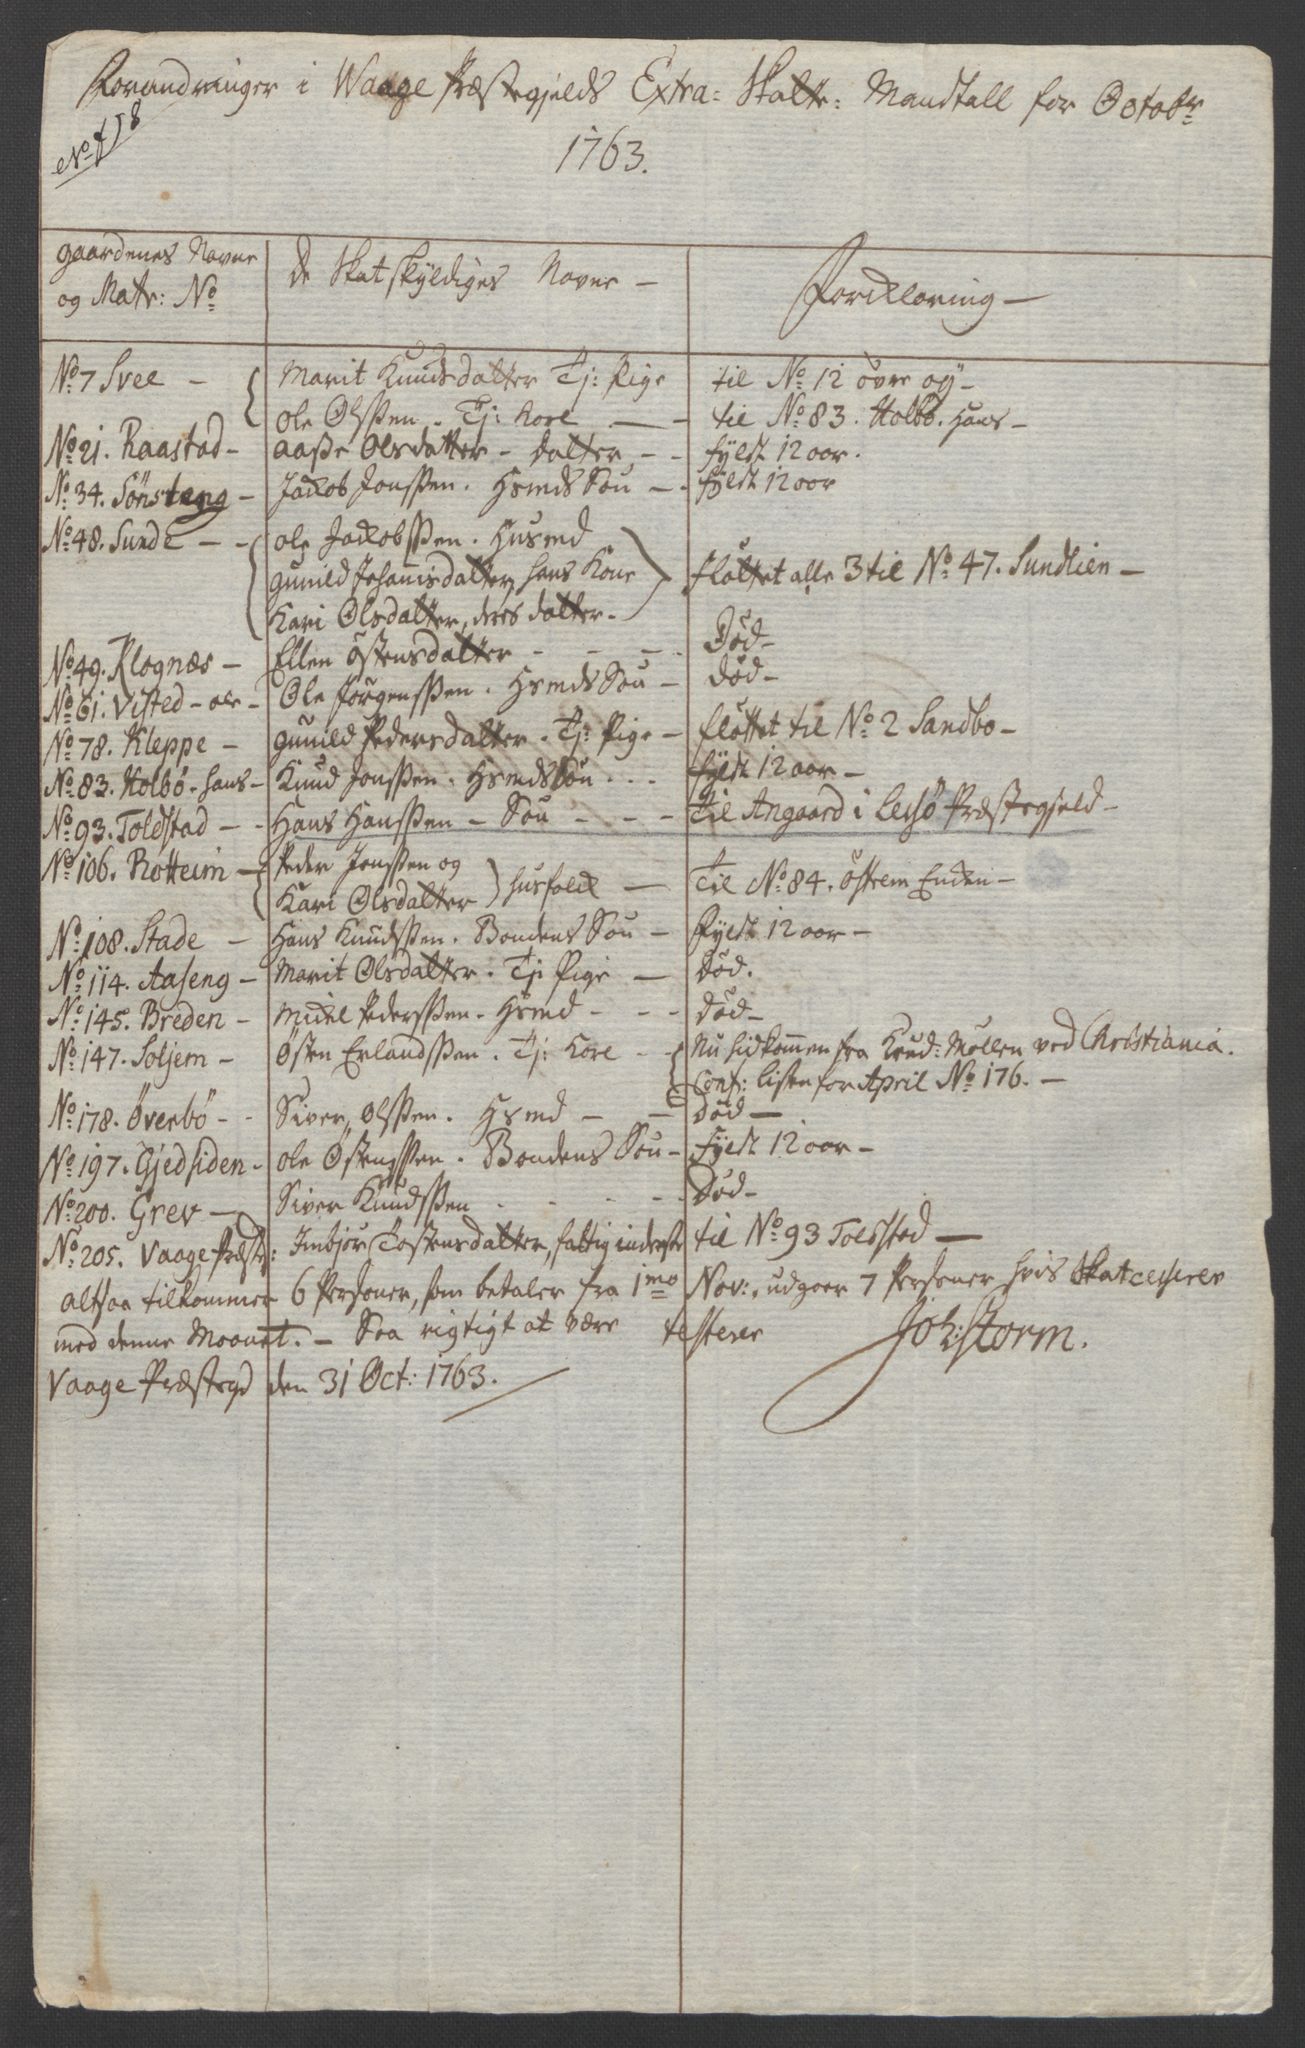 Forandringer i Waage Præstegjelds Extra: Skatte: Mandtall for Octobr
No 18
1763.
gaardenes Navne og Matr: No | De Skatskÿldiges Navne — | Forklaring —
No 7 Svee — | Marit Knudsdatter Tj: Pige | til No 12 övre oÿ —
Ole Olsßen. Tj: Karl — | til No 83. Holbö. Hans —
No 21. Raastad — | Aaße Olsdatter — datter — | fÿldt 12 aar.
No 34. Sönsteng — | Jackob Jonsßen. Hsmds Sön — | fÿldt 12 aar
No 48. Sunde — | ole Jackobsßen. Husmd
gunild Johannisdatter, hans Kone | flöttet alle 3 til No 47. Sundlien —
Kari Olsdatter, deres datter.
No 49. Klognæs — | Ellen Östensdatter — | Död —
No 61. Visted — ole — | Ole Jörgensßen. Hsmds Sön — | död —
No 78. Kleppe — | gunild Pedersdatter. Tj: Pige — | flöttet til No 2 Sandbo —
No 83. Holbö. hans — | Knud Jonsßen. Hsmds Sön | fÿldt 12 aar —
No 93. Toldstad — | Hans Hansßen — Sön — | Til Angaard i Lesö Præstegjeld —
No 106. Rotteim — | Peder Jonsßen og
Kari Olsdatter | husfolck — | Til No 84. östrem Enden —
No 108. Stade — | Hans Knudsßen. Bondens Sön — | Fÿldt 12 aar —
No 114. Aaseng — | Marit Olsdatter. Tj: Pige — | Död.
No 145. Breden — | Mickel Pedersßen. Hsmd — | död —
No 147. Soljem — | Östen Erlandsßen. Tj: Karl — | Nu hidkommen fra Krud: Möllen ved Christiania.
Conf: listen for April No 176. —
No 178. Överbö — | Siver Olsßen. Hsmd — | död —
No 197. Gjedsiden — | ole Östensßen. Bondens Sön — | fÿldt 12 aar —
No 200. Grev — | Siver Knudsßen | död —
No 205. Vaage Præstg: | Imbjör Tostensdatter, fattig inderste | til No 93 Tolsstad —
altsaa tilkommer 6 Personer, som betaler fra 1mo Nov:, udgaar 7 Personer hvis Skat cesserer
med denne Maanet. — Saa rigtigt at være testerer
Joh: Storm.
Vaage Præstegd den 31 Oct: 1763.